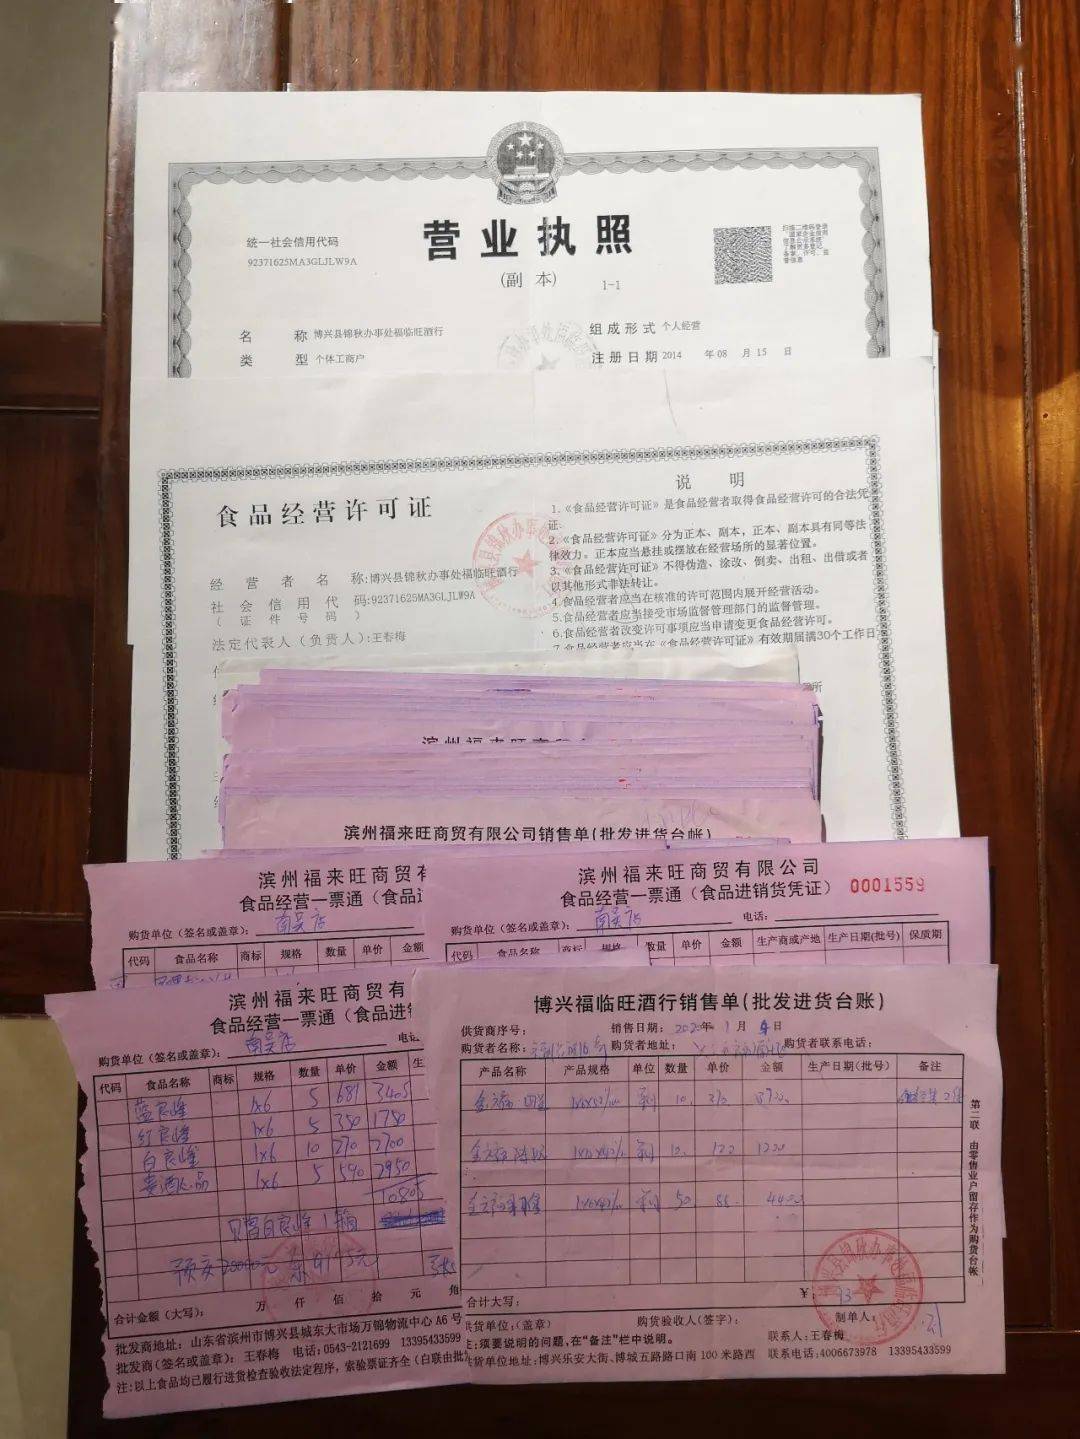 营业执照
(副 本)
1-1
统一社会信用代码
92371625MA3GLJLW9A
扫描二维码登录
名 称 博兴县锦秋办事处福临旺酒行
类 型 个体工商户
组成形式 个人经营
注册日期 2014 年 08 月 15 日
食品经营许可证
经营者名称:博兴县锦秋办事处福临旺酒行
社会信用代码:92371625MA3GLJLW9A
(证件号码)
法定代表人(负责人):王春梅
说 明
1.《食品经营许可证》是食品经营者取得食品经营许可的合法凭
证.
2.《食品经营许可证》分为正本、副本,正本、副本具有同等法
律效力。正本应当悬挂或摆放在经营场所的显著位置。
3.《食品经营许可证》不得伪造、涂改、倒卖、出租、出借或者
以其他形式非法转让。
4.食品经营者应当在核准的许可范围内展开经营活动。
5.食品经营者应当接受市场监督管理部门的监督管理。
6.食品经营者改变许可事项应当申请变更食品经营许可。
7.食品经营者应当在《食品经营许可证》有效期届满30个工作日
滨州福来旺商贸有限公司销售单(批发进货台帐)
滨州福来旺商贸有
食品经营一票通(食品
购货单位(签名或盖章): 南吴店
代码 食品名称 商标 规格 数量 单价 金额
滨州福来旺商贸有限公司
食品经营一票通(食品进销货凭证) 0001559
购货单位(签名或盖章): 南吴店 电话:
代码 食品名称 商标 规格 数量 单价 金额 生产商或产地 生产日期(批号) 保质期
滨州福来旺商贸有
食品经营一票通(食品进销
购货单位(签名或盖章): 南吴店 电话
代码 食品名称 商标 规格 数量 单价 金额 生
蓝良峰 1x6 5 681 3405
红良峰 1x6 5 350 1750
白良峰 1x6 10 270 2700
1x6 5 590 2950
10805
白良峰 1箱
预交20000元 余9195元
合计金额(大写): 万 仟 佰 拾 元 角
批发商地址: 山东省滨州市博兴县城东大市场万锦物流中心 A6 号
批发商(签名或盖章): 王春梅 电话:0543-2121699 13395433599
注:以上食品均已履行进货检查验收法定程序, 索验票证齐全(白联由批
博兴福临旺酒行销售单(批发进货台账)
供货商序号: 销售日期: 2020年 1 月 4 日
购货者名称: 购货者地址: 购货者联系电话:
产品名称 产品规格 单位 数量 单价 金额 生产日期(批号) 备注
10
10 122 1220
50 88 4400
第二联 由零售业户留存作为购货台帐
¥:
合计大写:
供货单位:(盖章) 购货验收人(签字): 制单人:
注:须要说明的问题,在“备注”栏中说明。 联系人:王春梅
供货单位地址:博兴乐安大街、博城五路路口南 100 米路西 联系电话:4006673978 13395433599